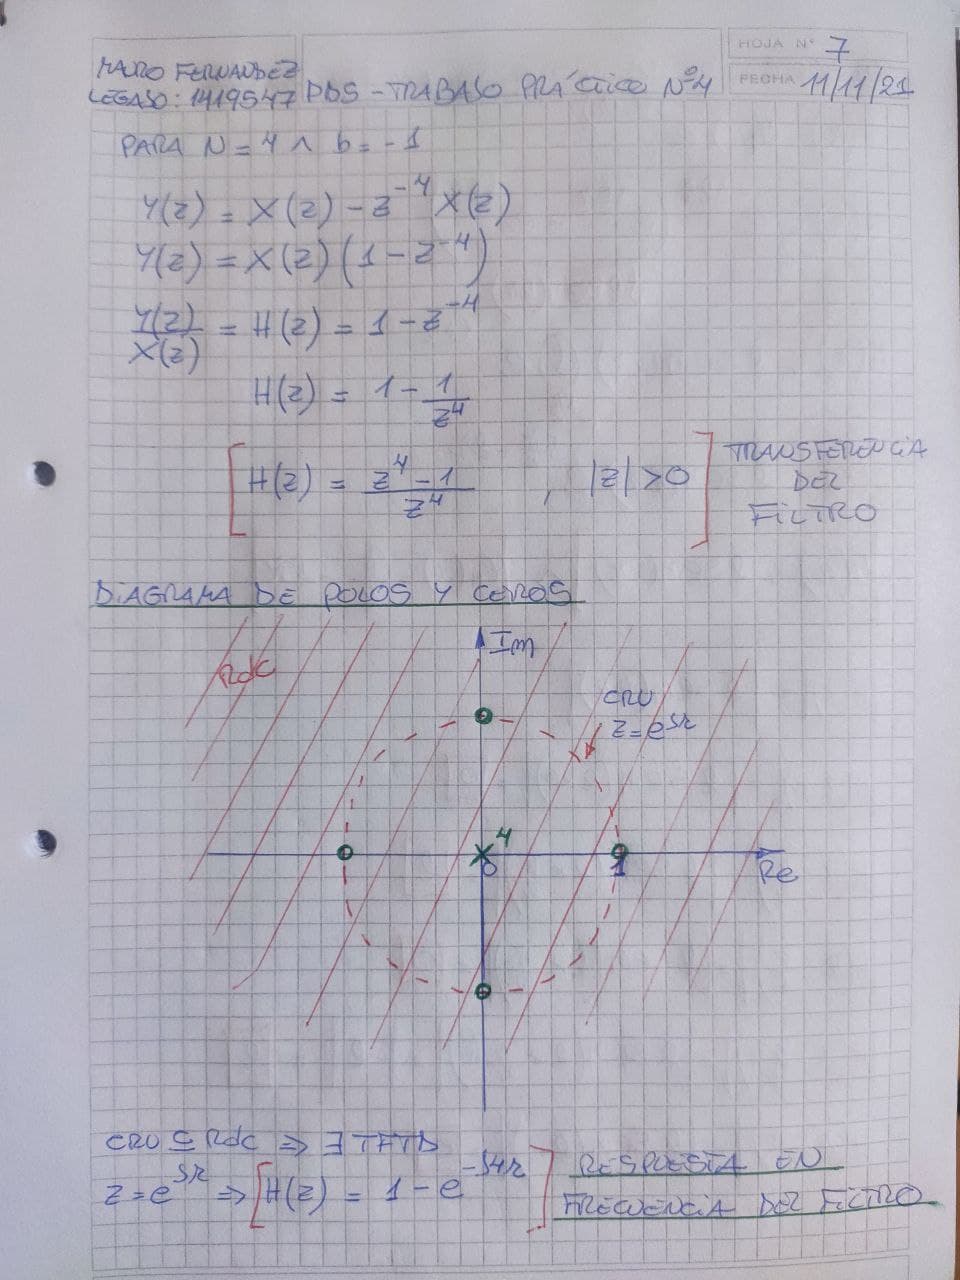 HOJA N° 7
MAURO FERNANDEZ
LEGAJO: 1419547 PDS - TRABAJO PRÁCTICO Nº4
FECHA 11/11/21
PARA N = 4 ∧ b = -1
Y(z) = X(z) - z⁻⁴ X(z)
Y(z) = X(z) (1 - z⁻⁴)
Y(z)/X(z) = H(z) = 1 - z⁻⁴
H(z) = 1 - 1/z⁴
[H(z) = (z⁴ - 1)/z⁴ , |z| > 0] TRANSFERENCIA
DEL
FILTRO
DIAGRAMA DE POLOS Y CEROS
Im
Rdc
CRU
z = e^jΩ
4
0
1
Re
CRU ⊆ Rdc ⇒ ∃ TFTD
z = e^jΩ ⇒ [H(z) = 1 - e^-j4Ω] RESPUESTA EN
FRECUENCIA DEL FILTRO